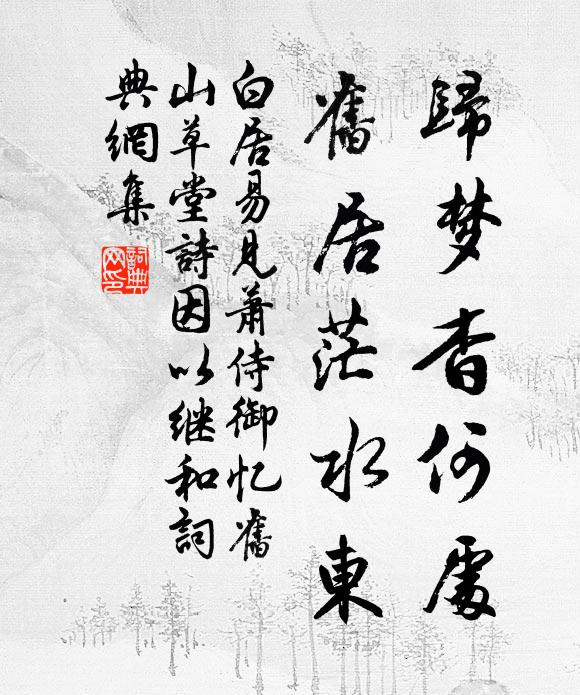 歸梦杳何處
舊居茫水東
白居易見蕭侍御忆舊
山草堂詩因以继和詞
典網集